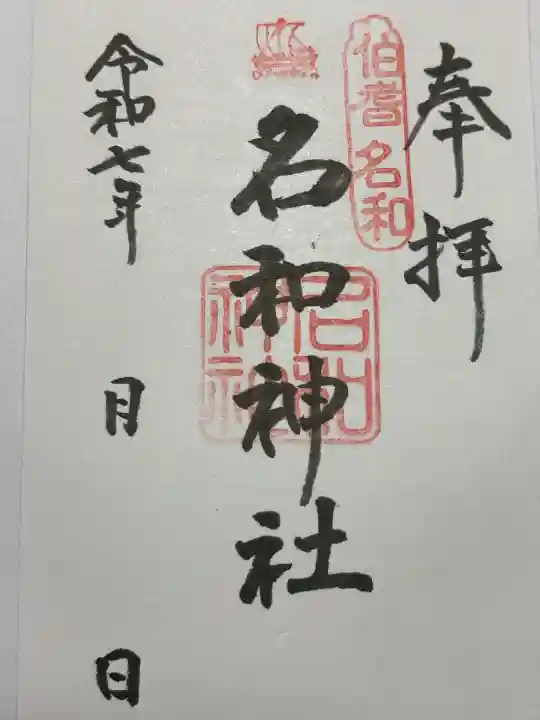 奉拝
伯耆名和
名和神社
名和神社
令和七年 月 日